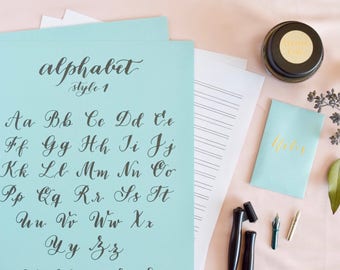 alphabet
style 1
Aa Bb Cc Dd Ee
Ff Gg Hh Ii Jj
Kk Ll Mm Nn Oo
Pp Qq Rr Ss Tt
Uu Vv Ww Xx
Yy Zz